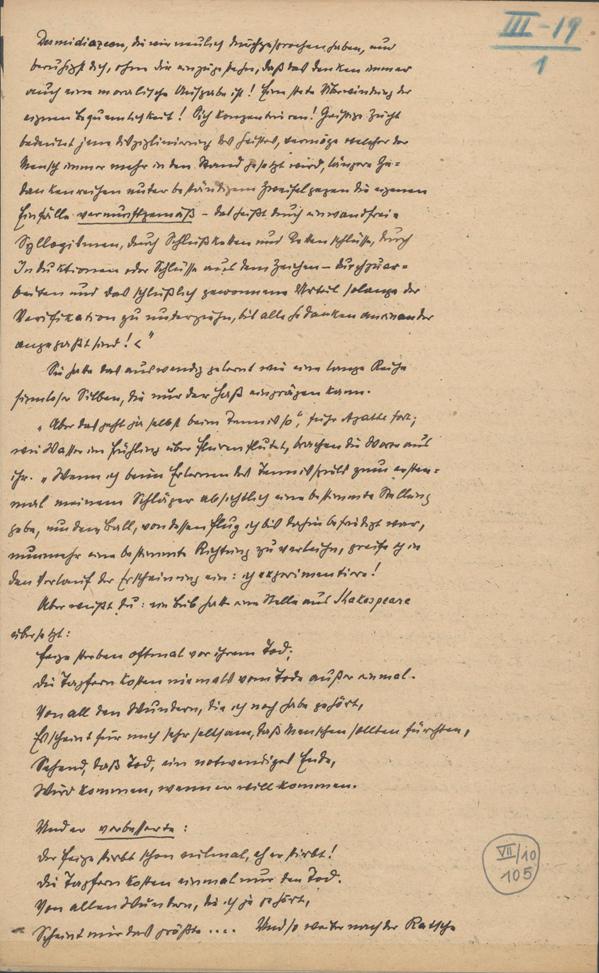 III-19
1
die wir neulich durchgesprochen haben, und
beruhigst dich, ohne die einzugestehn, daß das denken immer
auch eine moralische Aufgabe ist! Eine stete Überwindung der
eignen Bequemlichkeit! Sich konzentrieren! Geistige Zucht
bedeutet jene Disziplinierung des Geistes, vermöge welcher der
Mensch immer mehr in den Stand gesetzt wird, längere Ge-
dankenreihen unter beständigem Zweifel gegen die eigenen
Einfälle vernunftgemäß – das heißt durch einwandfreie
Syllogismen, durch Schlußketten und Kettenschlüsse, durch
Induktionen oder Schlüsse aus dem Zeichen – durchzuar-
beiten und das schließlich gewonnene Urteil solange der
Verifikation zu unterziehn, bis alle Gedanken aneinander
angepaßt sind! < "
Sie habe das auswendig gelernt wie eine lange Reihe
sinnloser Silben, die nur der Haß einprägen kann.
„Aber das geht ja selbst beim Tennis so", fuhr Agathe fort;
wie Wasser im Frühling über Fluren flutet, brachen die Worte aus
ihr. „Wenn ich beim Erlernen des Tennisspiels zum ersten-
mal meinem Schläger absichtlich eine bestimmte Stellung
gebe, um dem Ball, von dessen Flug ich bis dahin befriedigt war,
nunmehr eine bestimmte Richtung zu verleihn, greife ich in
den Verlauf der Erscheinung ein: ich experimentiere!
Aber weißt du: ein Bub hatte eine Stelle aus Shakespeare
übersetzt:
Feige sterben oftmal vor ihrem Tod;
Die Tapfern kosten niemals vom Tode außer einmal.
Von all den Wundern, die ich noch habe gehört,
Es scheint für mich sehr seltsam, daß Menschen sollten fürchten,
Sehend, daß Tod, ein notwendiges Ende,
Wird kommen, wann er will kommen.
Und er verbesserte:
Der Feige stirbt schon vielmal, eh er stirbt!
Die Tapfern kosten einmal nur den Tod.
Von allen Wundern, die ich je gehört,
Scheint mir das größte .... Und so weiter nach der
VII/10
105